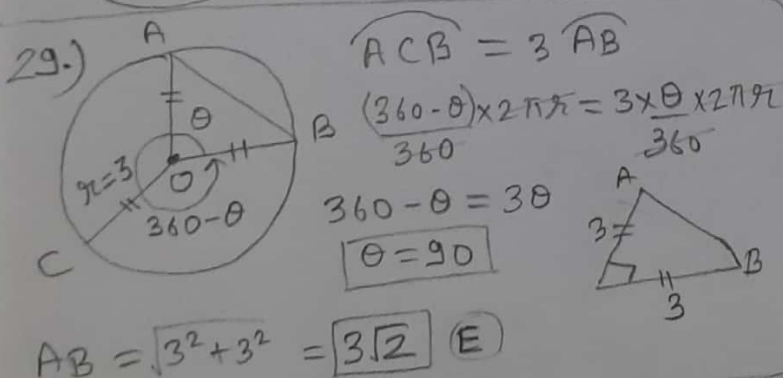 29.)
A
B
C
O
θ
r=3
360-θ
⌒ACB = 3 ⌒AB
(360-θ)/360 × 2πr = 3 × θ/360 × 2πr
360 - θ = 3θ
θ = 90
A
3
B
3
AB = √(3² + 3²) = 3√2 (E)